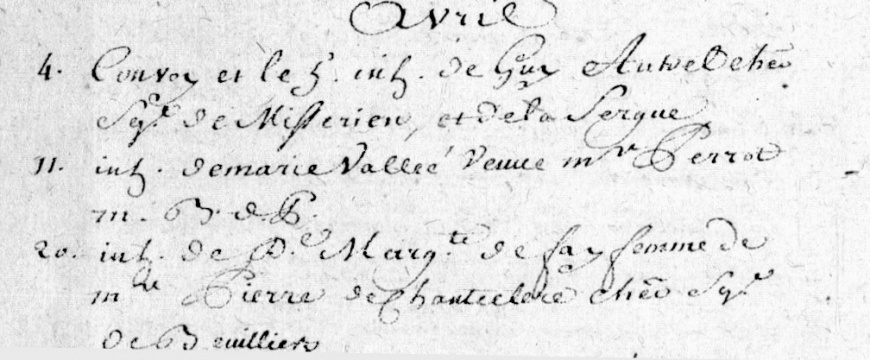 Avril
4. Convoy et le s. inh. de Guy Autret cheer
Sgr. de Misserien, et de la Sergue
11. inh. de marie Vallée Veuve mre Perrot
m. B. d. P.
20. inh. de De. Margte. de fay femme de
mre Pierre de Chantelere cheer Sgr
de Beuilliers